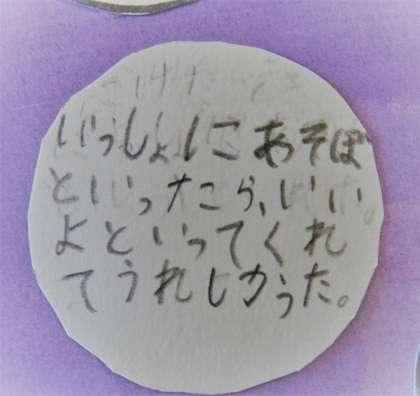 いっしょにあそぼ
といったら、いい
よといってくれ
てうれしかった。